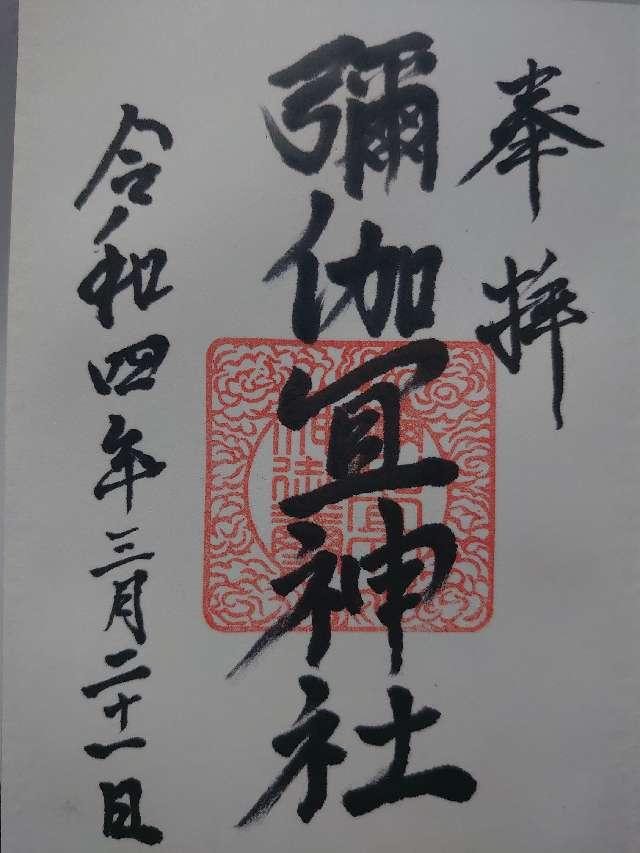 奉拝
彌伽宜神社
令和四年三月二十一日